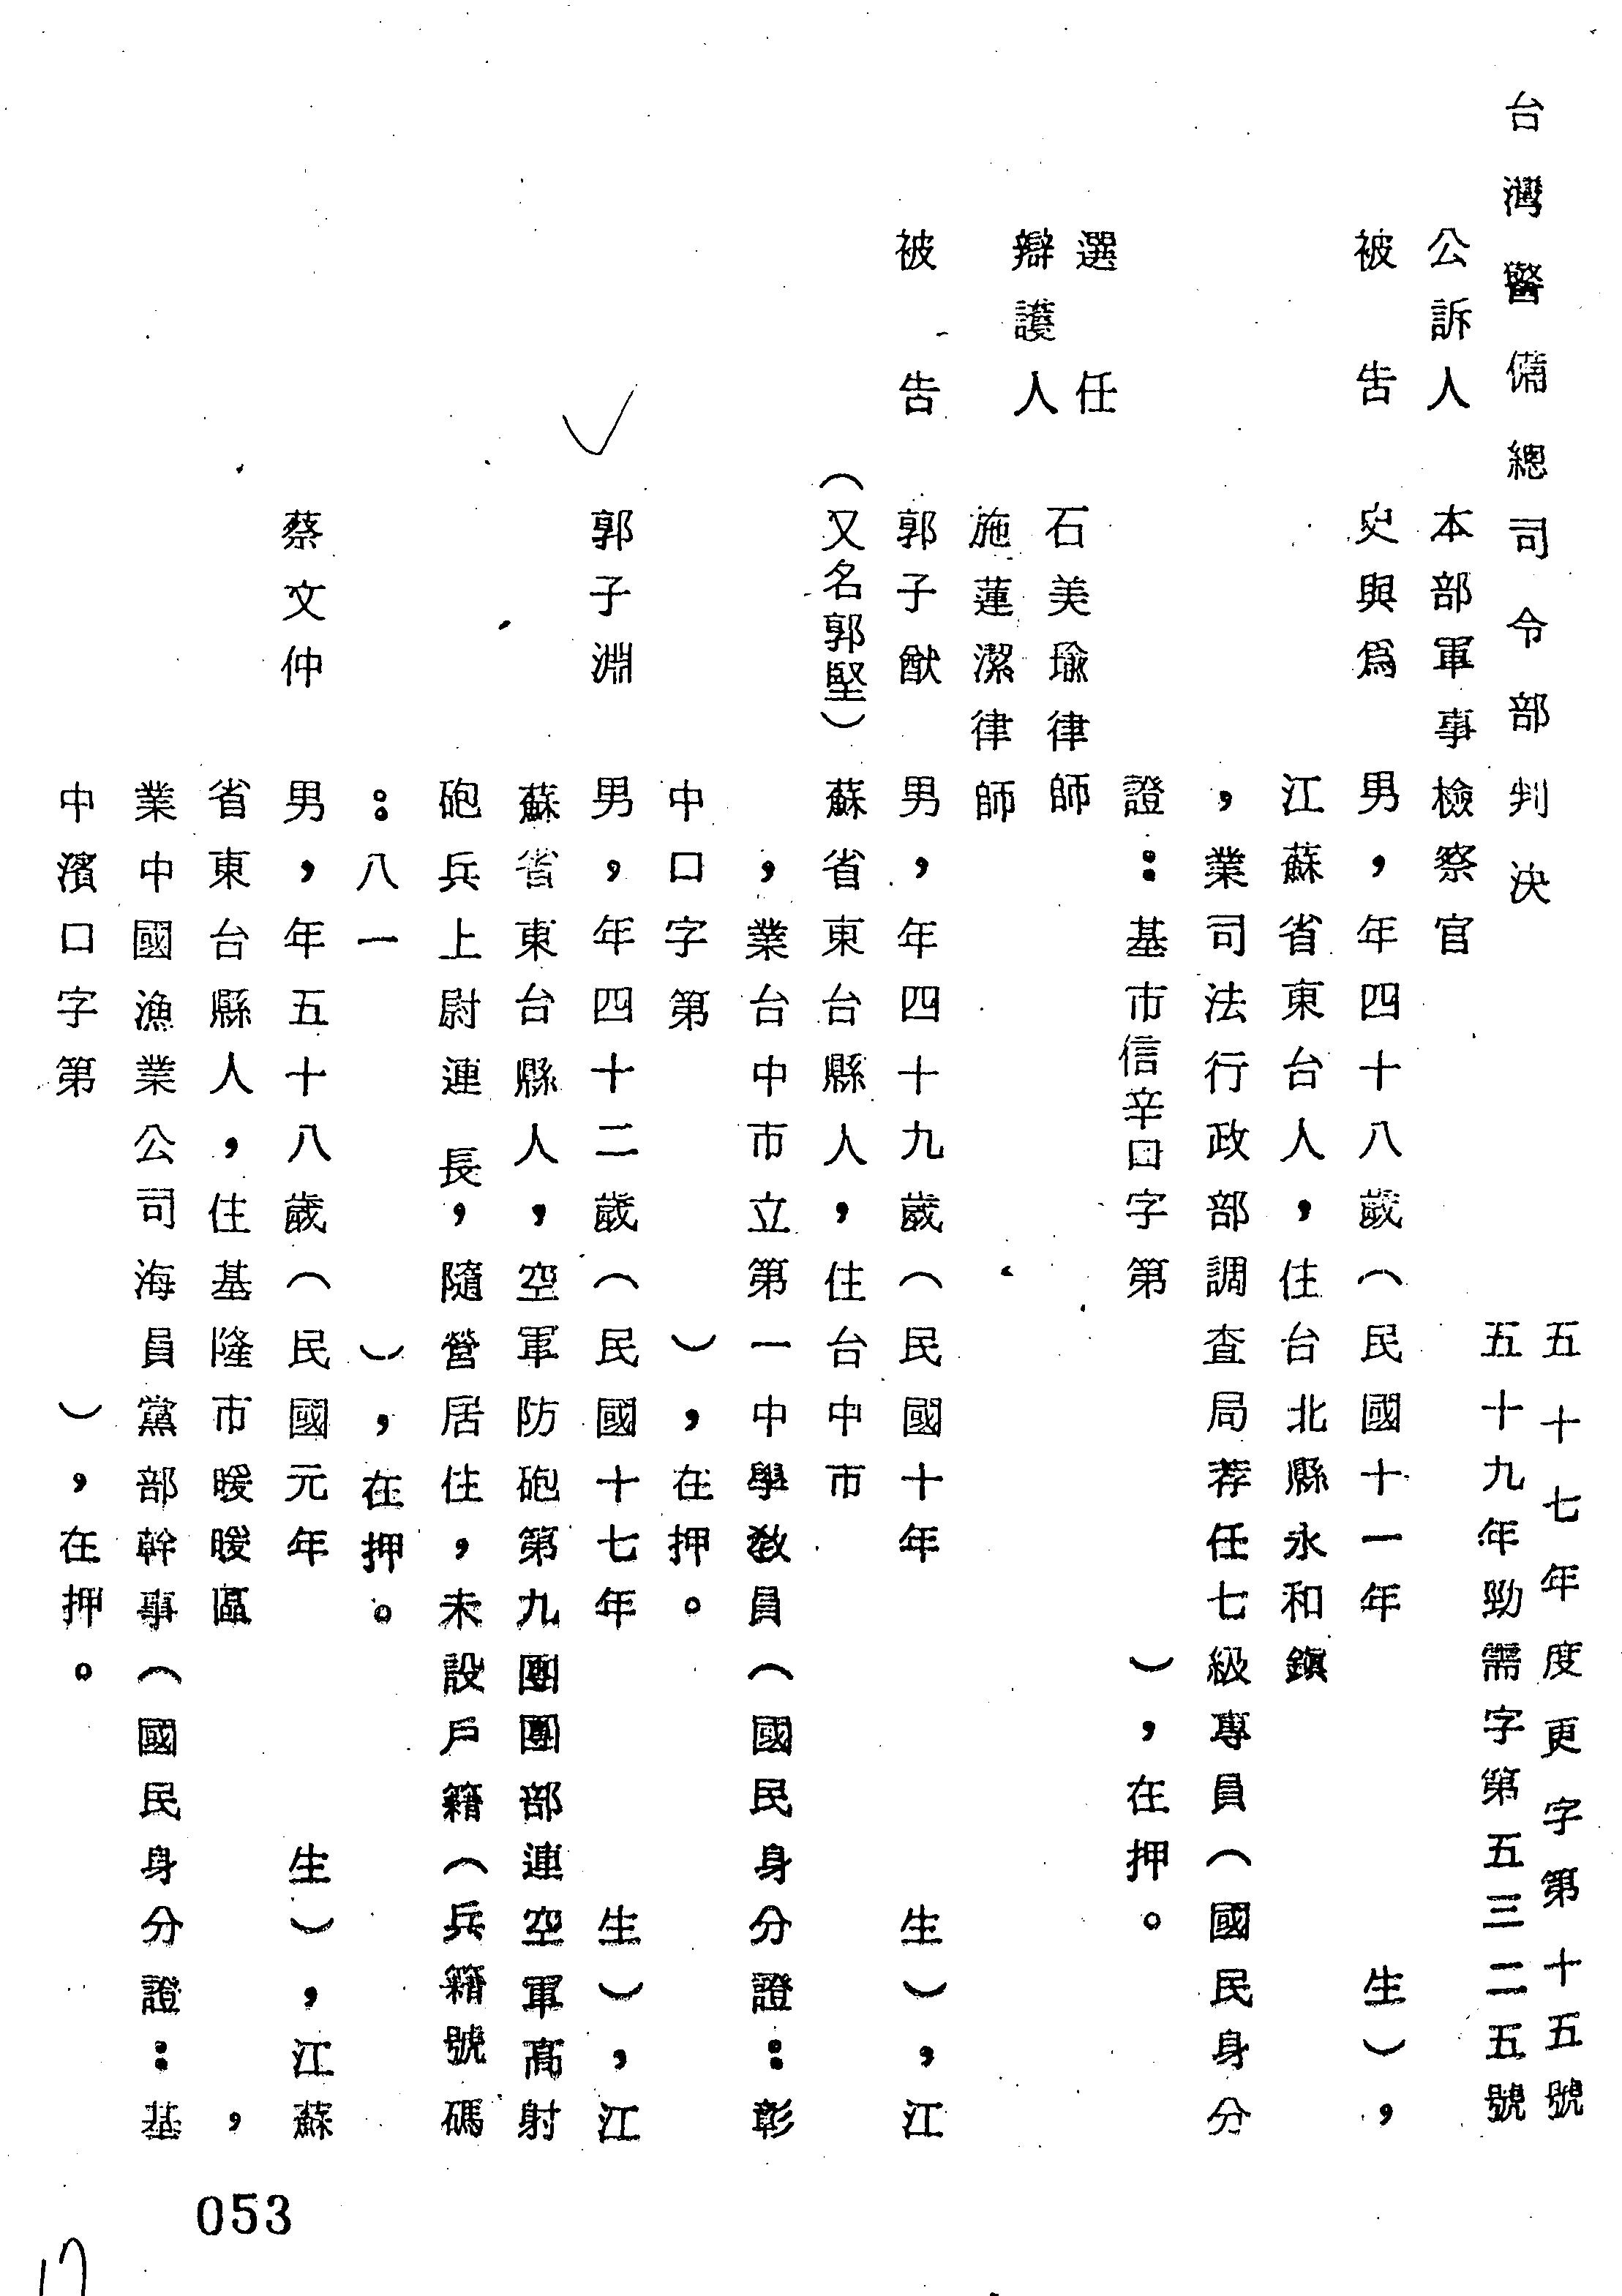 台灣警備總司令部判決
五十七年度更字第十五號
五十九年勁需字第五三二五號
公訴人 本部軍事檢察官
被告 史與為 男，年四十八歲（民國十一年 生），
江蘇省東台人，住台北縣永和鎮
，業司法行政部調查局荐任七級專員（國民身分
證：基市信辛口字第 ），在押。
選任
辯護人
石美瑜律師
施蓮潔律師
被告 郭子猷 男，年四十九歲（民國十年 生），江
（又名郭堅） 蘇省東台縣人，住台中市
，業台中市立第一中學教員（國民身分證：彰
中口字第 ），在押。
郭子淵 男，年四十二歲（民國十七年 生），江
蘇省東台縣人，空軍防砲第九團團部連空軍高射
砲兵上尉連長，隨營居住，未設戶籍（兵籍號碼
：八一 ），在押。
蔡文仲 男，年五十八歲（民國元年 生），江蘇
省東台縣人，住基隆市暖暖區 ，
業中國漁業公司海員黨部幹事（國民身分證：基
中濱口字第 ），在押。
053
17